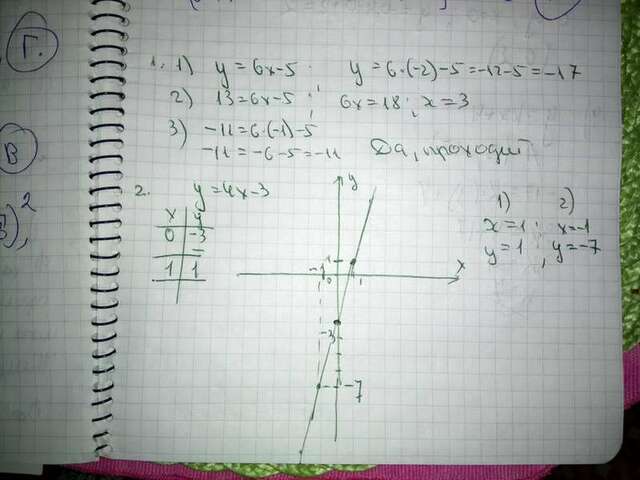 Г.
1. 1) y = 6x-5 y = 6·(-2)-5=-12-5=-17
2) 13=6x-5 ; 6x=18 ; x=3
3) -11=6·(-1)-5
-11=-6-5=-11 Да, проходит
В
2. y=4x-3
x y
0 -3
1 1
y
1
-1 0 1 x
-3
-7
1) 2)
x=1 ; x=-1
y=1 , y=-7
3)²,